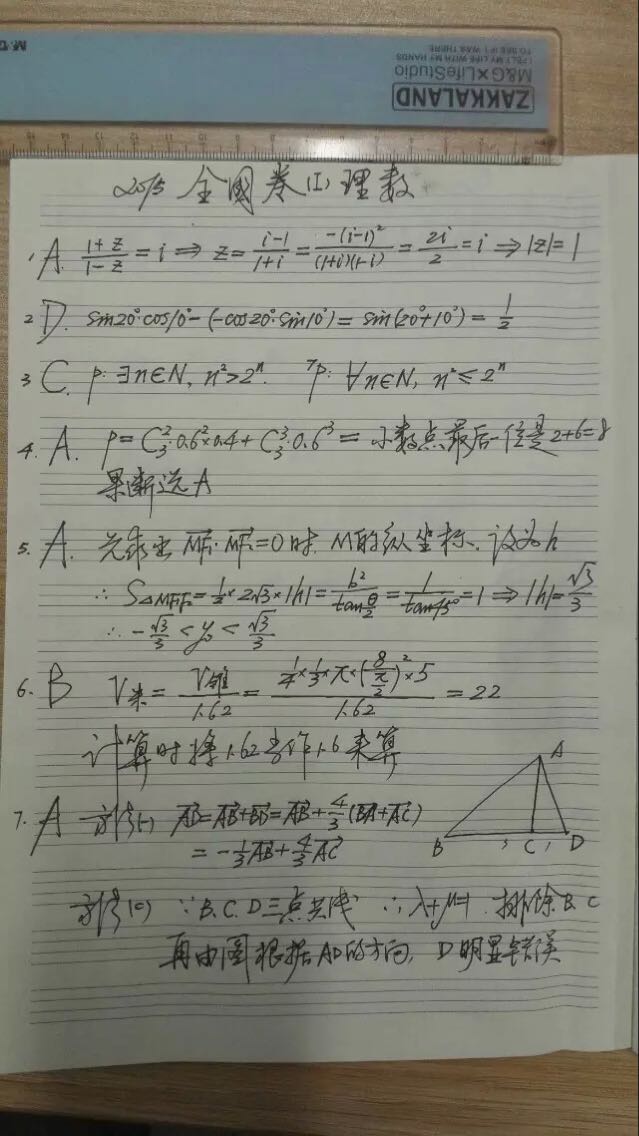 I FELT MY LIFE WITH MY HANDS
TO SEE IF I WAS THERE
M&G×LifeStudio
ZAKKALAND
2015 全国卷(I)理数
1. A. (1+z)/(1-z) = i ⇒ z = (i-1)/(1+i) = -(i-1)²/((1+i)(1-i)) = 2i/2 = i ⇒ |z| = 1
2. D. sin20°·cos10° - (-cos20°·sin10°) = sin(20°+10°) = 1/2
3. C. p: ∃n∈N, n²>2ⁿ. ¬p: ∀n∈N, n²≤2ⁿ
4. A. P = C₃²·0.6²×0.4 + C₃³·0.6³ = 小数点最后一位是2+6=8
果断选A
5. A. 先求出 MF₁·MF₂=0时 M的纵坐标, 设为h
∴ S△MF₁F₂ = 1/2×2√3×|h| = b²/tan(θ/2) = 1/tan45° = 1 ⇒ |h| = √3/3
∴ -√3/3 < y₀ < √3/3
6. B V米 = V锥/1.62 = (1/4×1/3×π×(8/(π/2))²×5)/1.62 = 22
计算时择1.62当作1.6来算
7. A 方法(一) AD=AB+BD=AB+4/3(BA+AC)
= -1/3AB+4/3AC
A
B C D
方法(二) ∵B.C.D三点共线 ∴λ+μ=1 排除B.C
再由图根据AD的方向, D明显错误